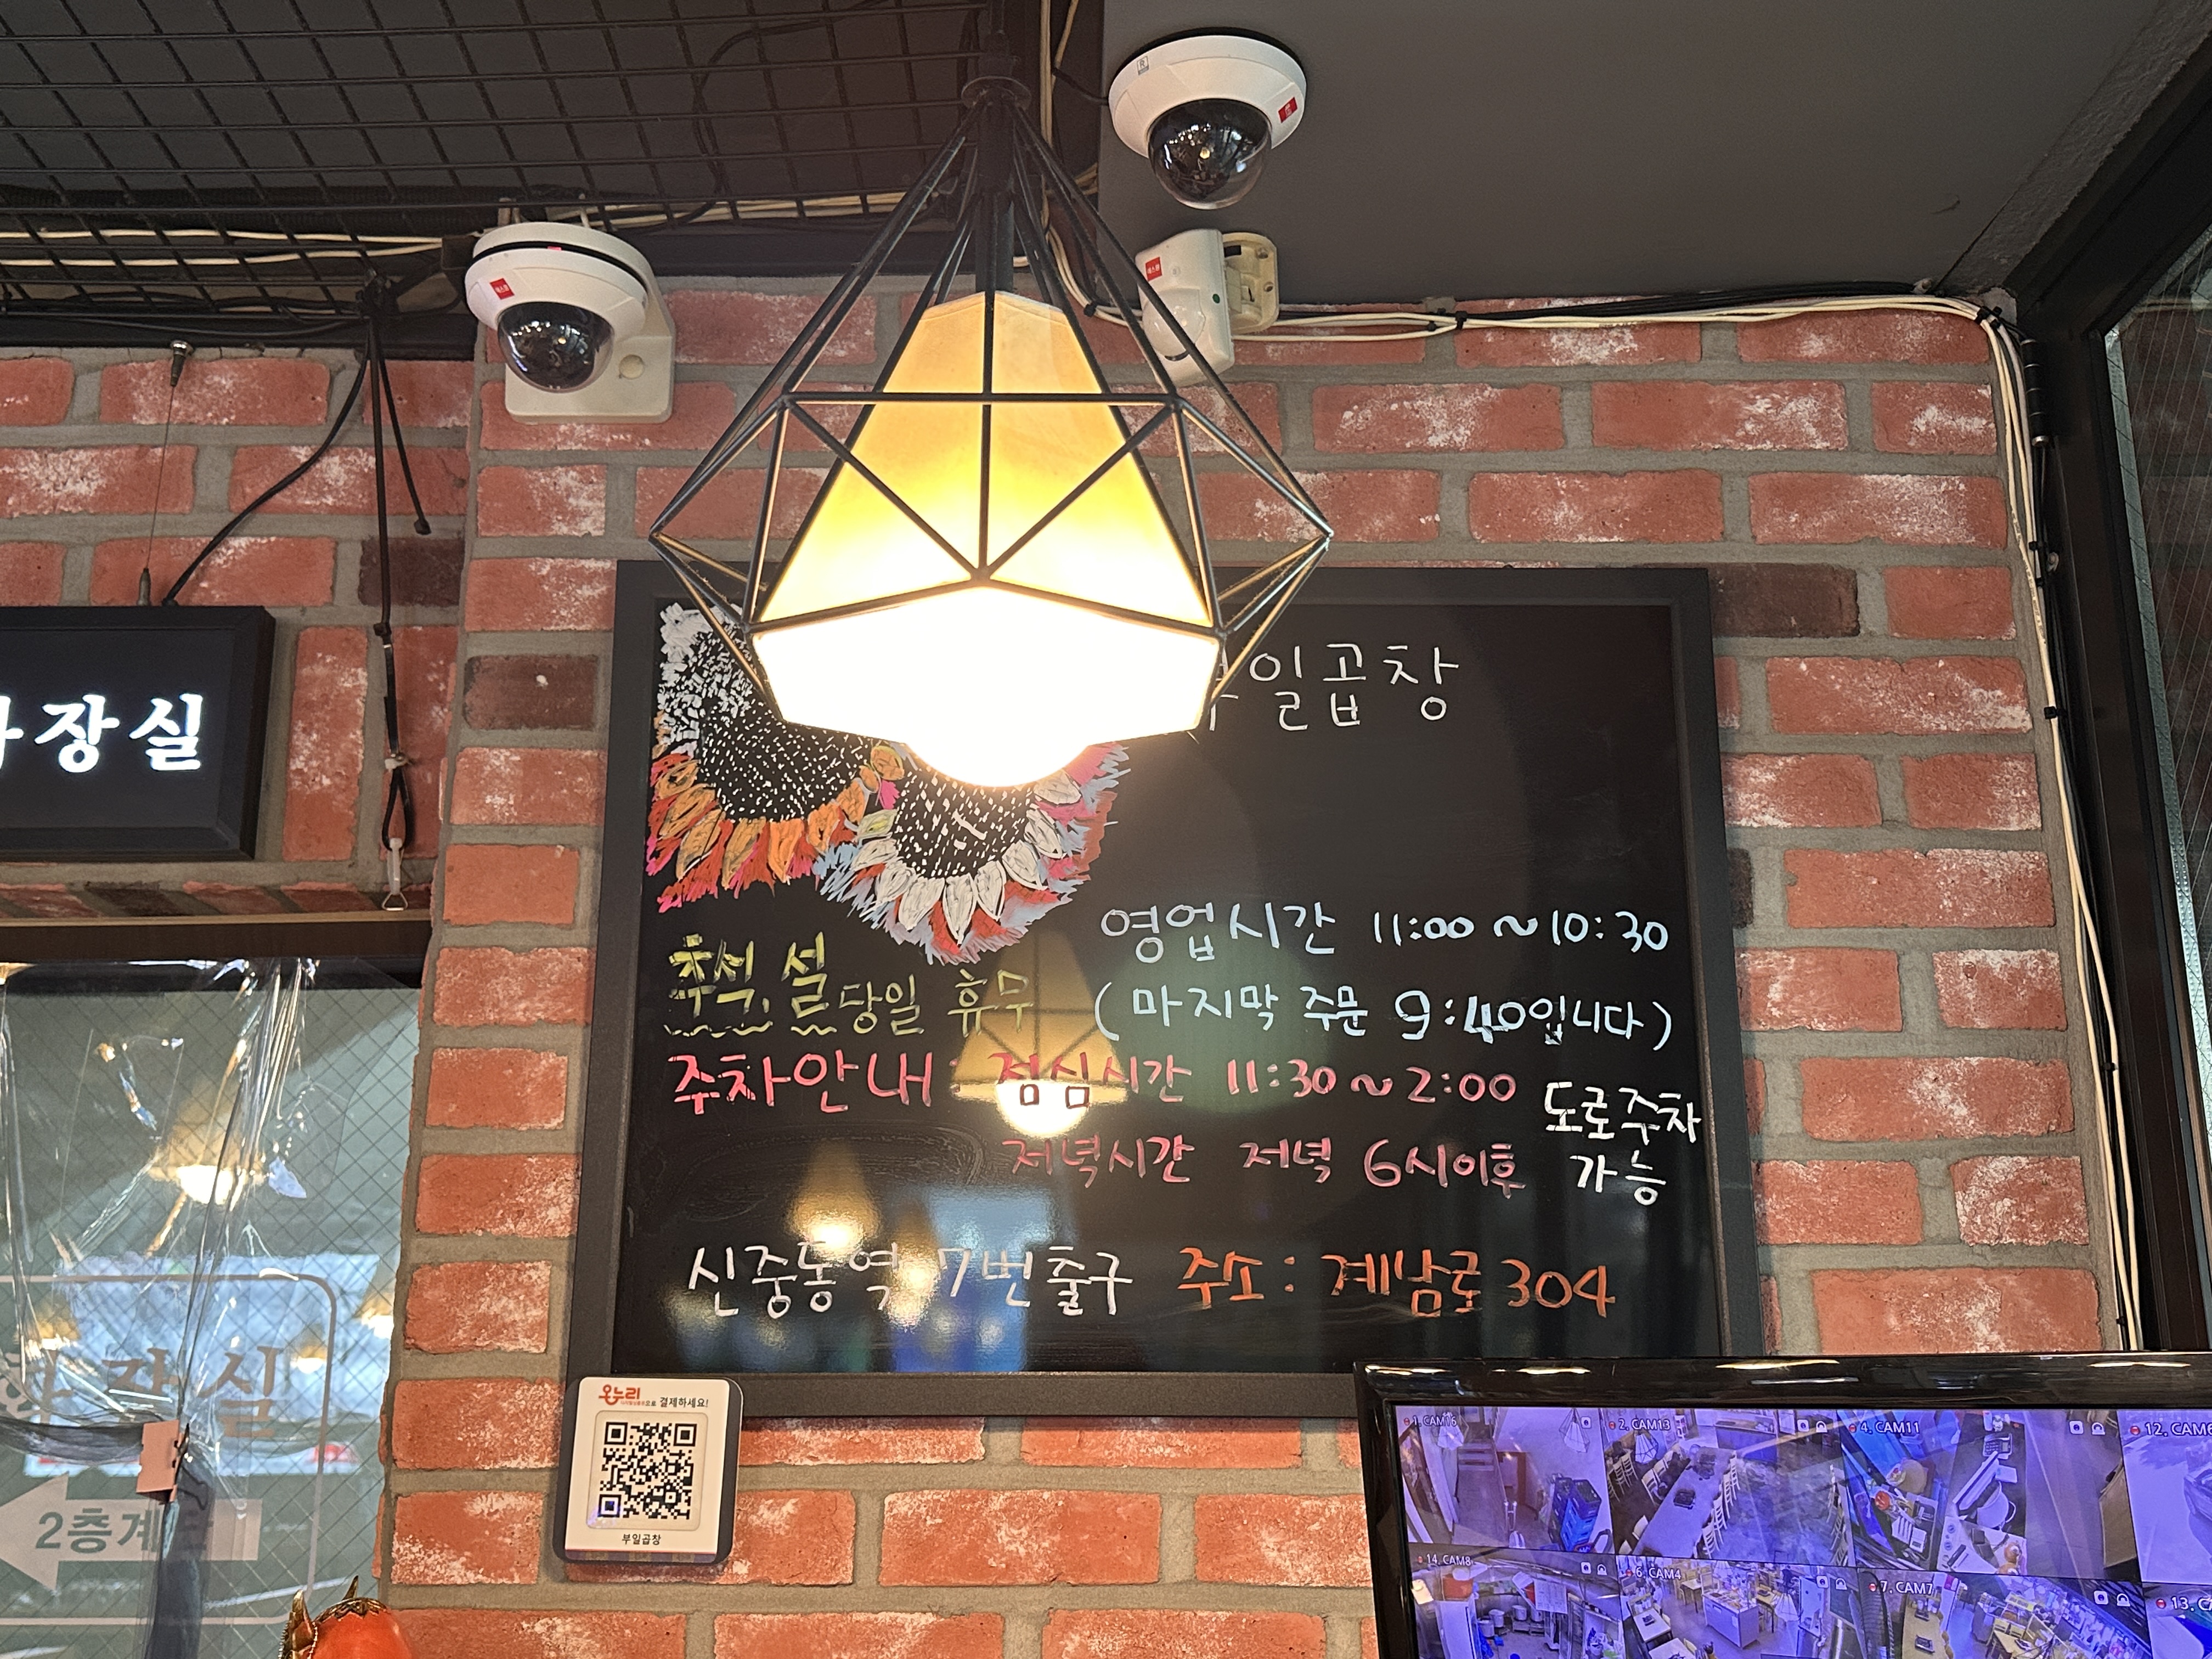 일곱창
장실
영업시간 11:00 ~ 10:30
추석, 설 당일 휴무
(마지막 주문 9:40입니다)
주차안내 : 점심시간 11:30 ~ 2:00
저녁시간 저녁 6시이후
도로주차
가능
신중동역 7번출구 주소: 계남로 304
온누리
으로 결제하세요!
부일곱창
장실
2층계단
1. CAM16
2. CAM13
4. CAM11
12. CAM6
14. CAM8
6. CAM4
7. CAM7
13.